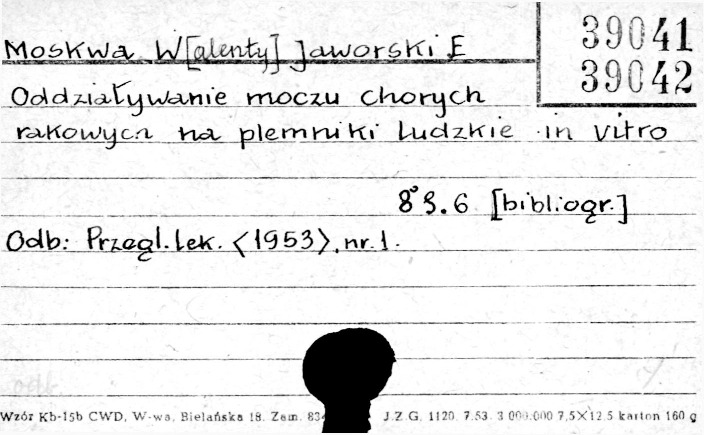 Moskwa W[alenty] Jaworski E
39041
39042
Oddziaływanie moczu chorych
rakowych na plemniki ludzkie in vitro
8° S. 6 [bibliogr.]
Odb: Przegl. lek. <1953>. nr. 1.
Wzór Kb-15b CWD, W-wa, Bielańska 18. Zam. 83 J.Z.G. 1120. 7.53. 3 000.000 7,5×12,5 karton 160 g